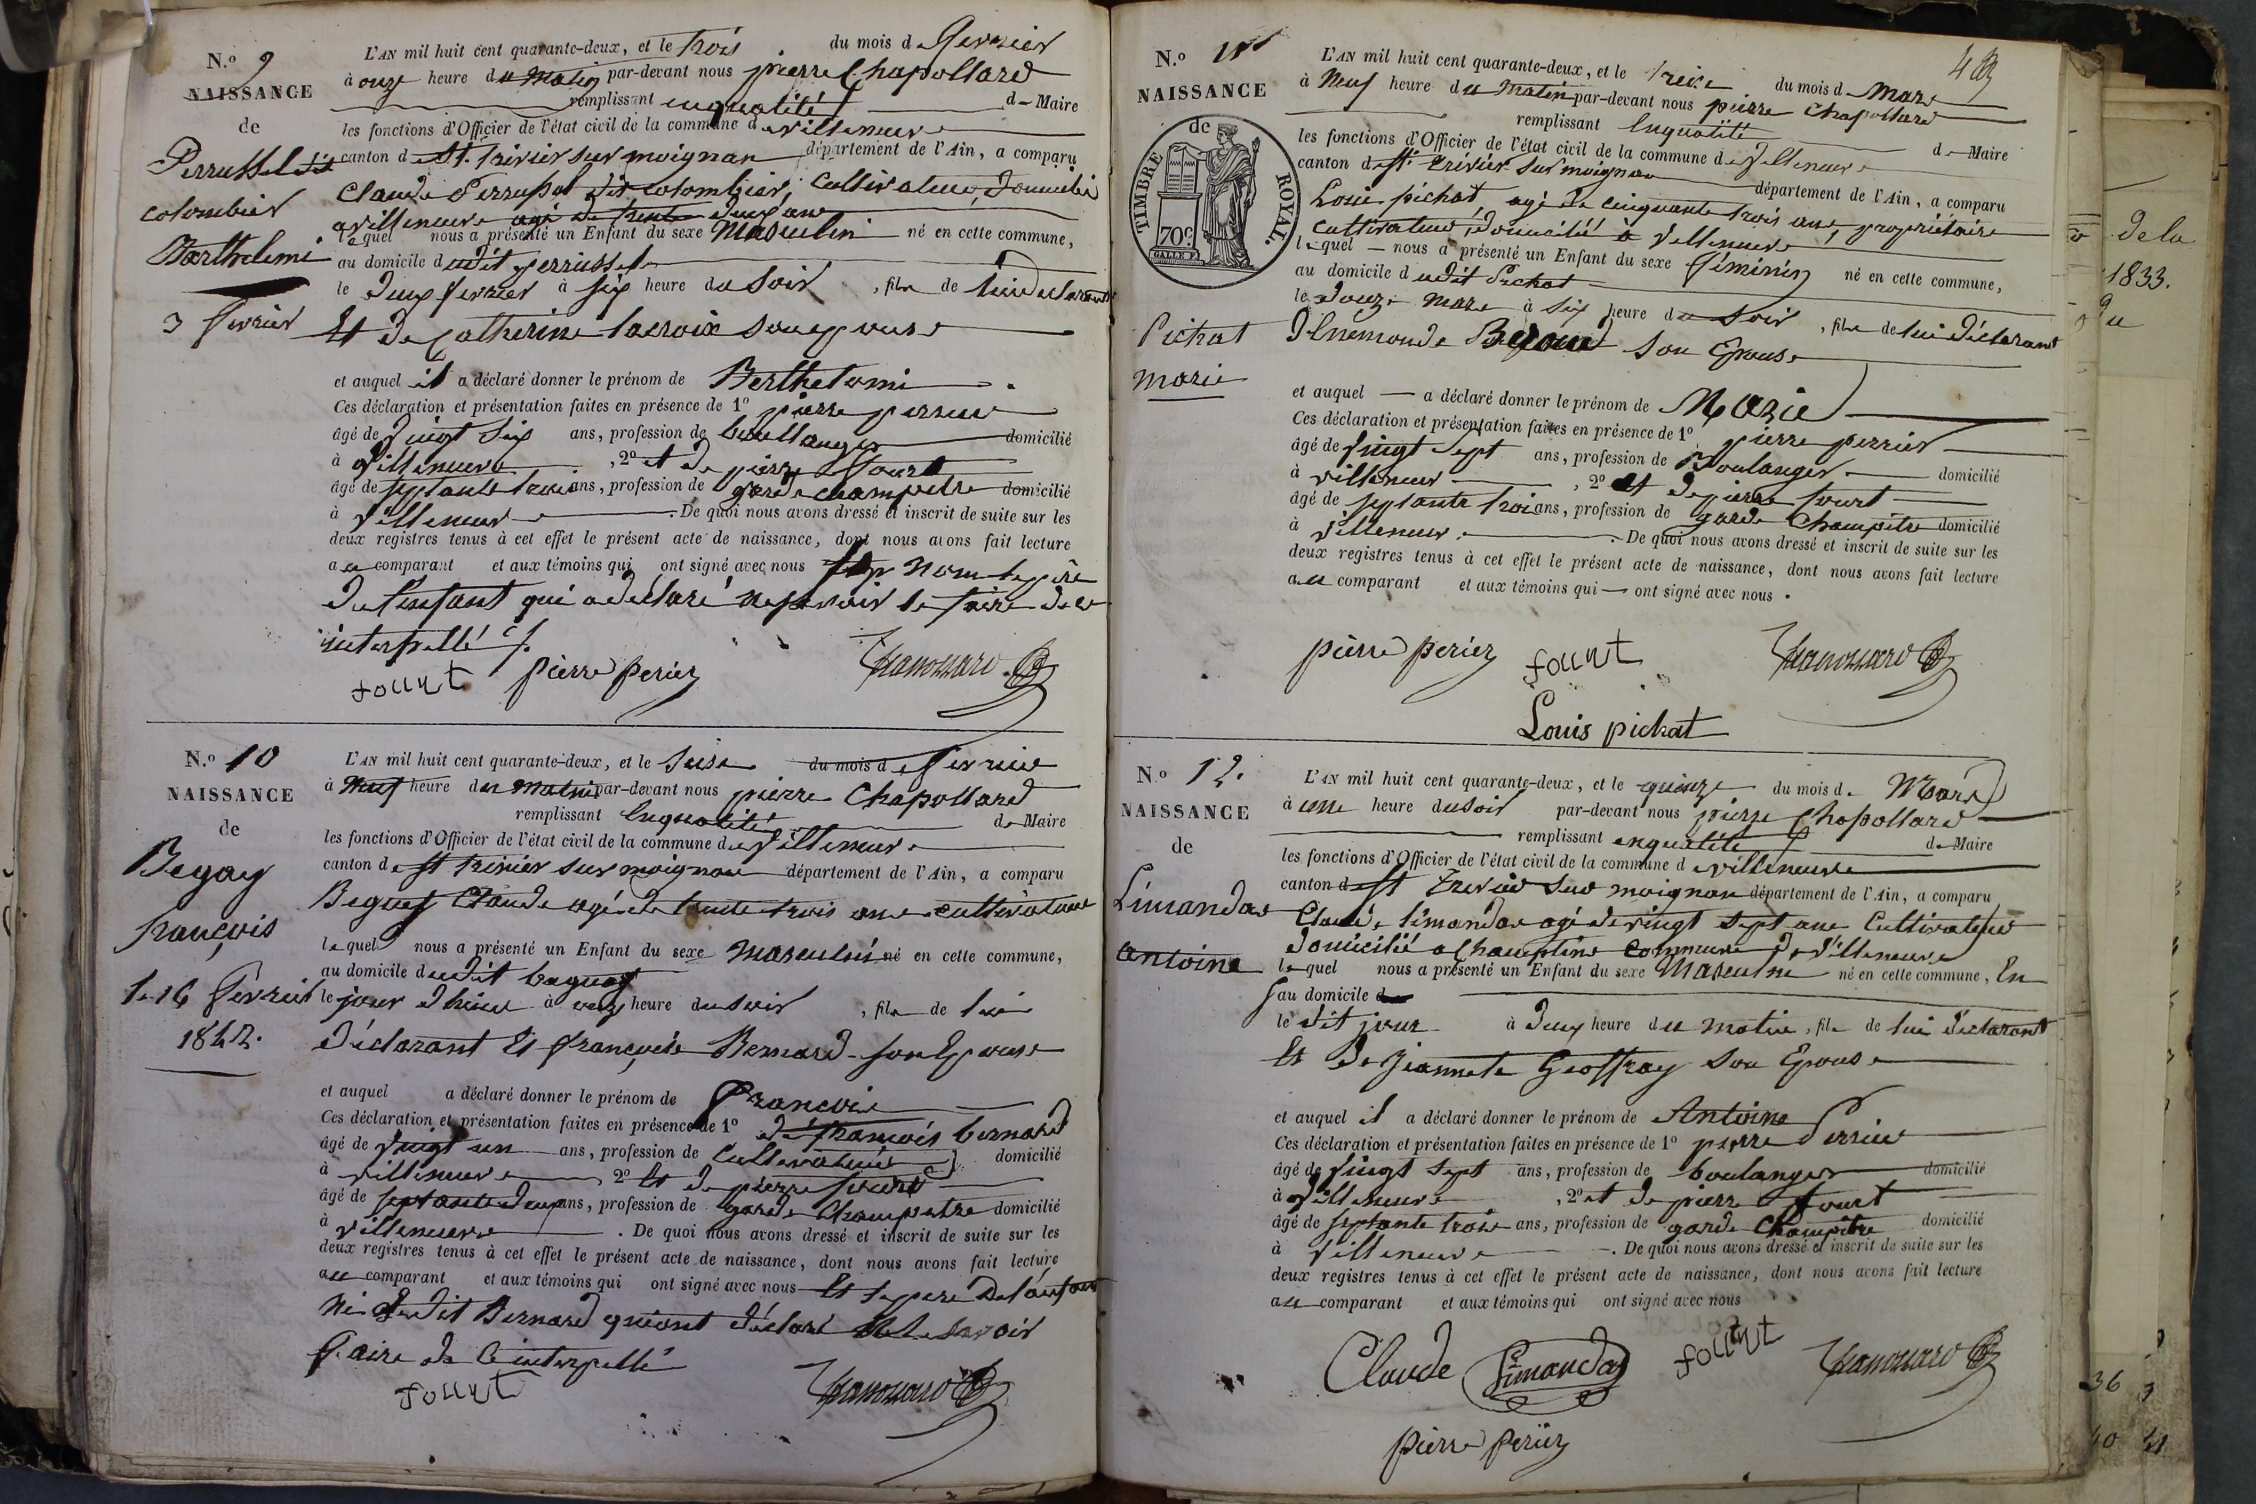 N.º 9
NAISSANCE
de
Perrussel dit
colombier
Barthelemi
3 fevrier
L'AN mil huit cent quarante-deux, et le trois du mois de fevrier
à onze heure du matin par-devant nous pierre Chapollard
remplissant en qualité de Maire
les fonctions d'Officier de l'état civil de la commune de villeneuve
canton de St. trivier sur moignan département de l'Ain, a comparu
Claude Perrussel dit colombier, cultivateur, domicilié
a villeneuve agé de trente deux ans
lequel nous a présenté un Enfant du sexe Masculin né en cette commune,
au domicile dudit perrussel
le deux fevrier à six heure du soir, fils de lui declarant
Et de Catherine lacroix son epouse
et auquel il a déclaré donner le prénom de Berthelomi
Ces déclaration et présentation faites en présence de 1º pierre perrier
âgé de vingt six ans, profession de boullanger domicilié
à villeneuve, 2º et de pierre fourt
âgé de septante trois ans, profession de garde champetre domicilié
à villeneuve. De quoi nous avons dressé et inscrit de suite sur les
deux registres tenus à cet effet le présent acte de naissance, dont nous avons fait lecture
au comparant et aux témoins qui ont signé avec nous non le père
de l'enfant qui a déclaré ne savoir le faire de ce
interpellé
fourt pierre perier
N.º 10
NAISSANCE
de
Begay
francois
le 16 fevrier
1842.
L'AN mil huit cent quarante-deux, et le seise du mois de fevrier
à neuf heure du matin par-devant nous pierre Chapollard
remplissant en qualité de Maire
les fonctions d'Officier de l'état civil de la commune de villeneuve
canton de St trivier sur moignan département de l'Ain, a comparu
Claude agé de trente trois ans cultivateur
lequel nous a présenté un Enfant du sexe masculin né en cette commune,
au domicile dudit
le jour d'hier à onze heure du soir, fils de lui
déclarant Et françoise Bernard son Epouse
et auquel a déclaré donner le prénom de francois
Ces déclaration et présentation faites en présence de 1º de francois bernard
âgé de vingt un ans, profession de cultivateur domicilié
à villeneuve 2º Et de pierre fourt
âgé de septante deux ans, profession de garde champetre domicilié
à villeneuve. De quoi nous avons dressé et inscrit de suite sur les
deux registres tenus à cet effet le présent acte de naissance, dont nous avons fait lecture
au comparant et aux témoins qui ont signé avec nous Et le pere de l'enfant
ni ledit Bernard qui ont déclaré ne le savoir
faire de ce interpellé
fourt
N.º 11
NAISSANCE
de
TIMBRE ROYAL.
70c.
Pichat
marie
L'AN mil huit cent quarante-deux, et le treize du mois de Mars
à Neuf heure du matin par-devant nous pierre Chapollard
remplissant En qualité de Maire
les fonctions d'Officier de l'état civil de la commune de villeneuve
canton de St. trivier sur moignan département de l'Ain, a comparu
Louis pichat, agé de cinquante trois ans, propriétaire
cultivateur, domicilié à villeneuve
lequel nous a présenté un Enfant du sexe féminin né en cette commune,
au domicile dudit Pichat
le douze mars à six heure du soir, fille de lui déclarant
son Epouse
et auquel a déclaré donner le prénom de Marie
Ces déclaration et présentation faites en présence de 1º pierre perrier
âgé de vingt sept ans, profession de Boulanger domicilié
à villeneuve, 2º Et de pierre fourt
âgé de septante trois ans, profession de garde Champêtre domicilié
à villeneuve. De quoi nous avons dressé et inscrit de suite sur les
deux registres tenus à cet effet le présent acte de naissance, dont nous avons fait lecture
au comparant et aux témoins qui ont signé avec nous.
pierre perier fourt
Louis pichat
N.º 12.
NAISSANCE
de
Limandas
antoine
L'AN mil huit cent quarante-deux, et le quinze du mois de Mars
à une heure du soir par-devant nous pierre Chapollard
remplissant en qualité de Maire
les fonctions d'Officier de l'état civil de la commune de villeneuve
canton de St Trivier sur moignan département de l'Ain, a comparu
Claude limandas agé de vingt sept ans Cultivateur
domicilié a Champtine commune de villeneuve
lequel nous a présenté un Enfant du sexe Masculin né en cette commune, En
au domicile
le dit jour à deux heure du matin, fils de lui déclarant
Et de Jeannete Geoffray son Epouse
et auquel il a déclaré donner le prénom de Antoine
Ces déclaration et présentation faites en présence de 1º pierre Perrier
âgé de vingt sept ans, profession de boulanger domicilié
à villeneuve, 2º et de pierre fourt
âgé de septante trois ans, profession de garde Champêtre domicilié
à villeneuve. De quoi nous avons dressé et inscrit de suite sur les
deux registres tenus à cet effet le présent acte de naissance, dont nous avons fait lecture
au comparant et aux témoins qui ont signé avec nous
Claude Limandas fourt
pierre perier
de la
1833.
du
36